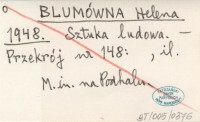 BLUMÓWNA Helena
1948. Sztuka ludowa. —
Przekrój nr 148: , il.
M. in. na Podhalu.
BT/009/0376